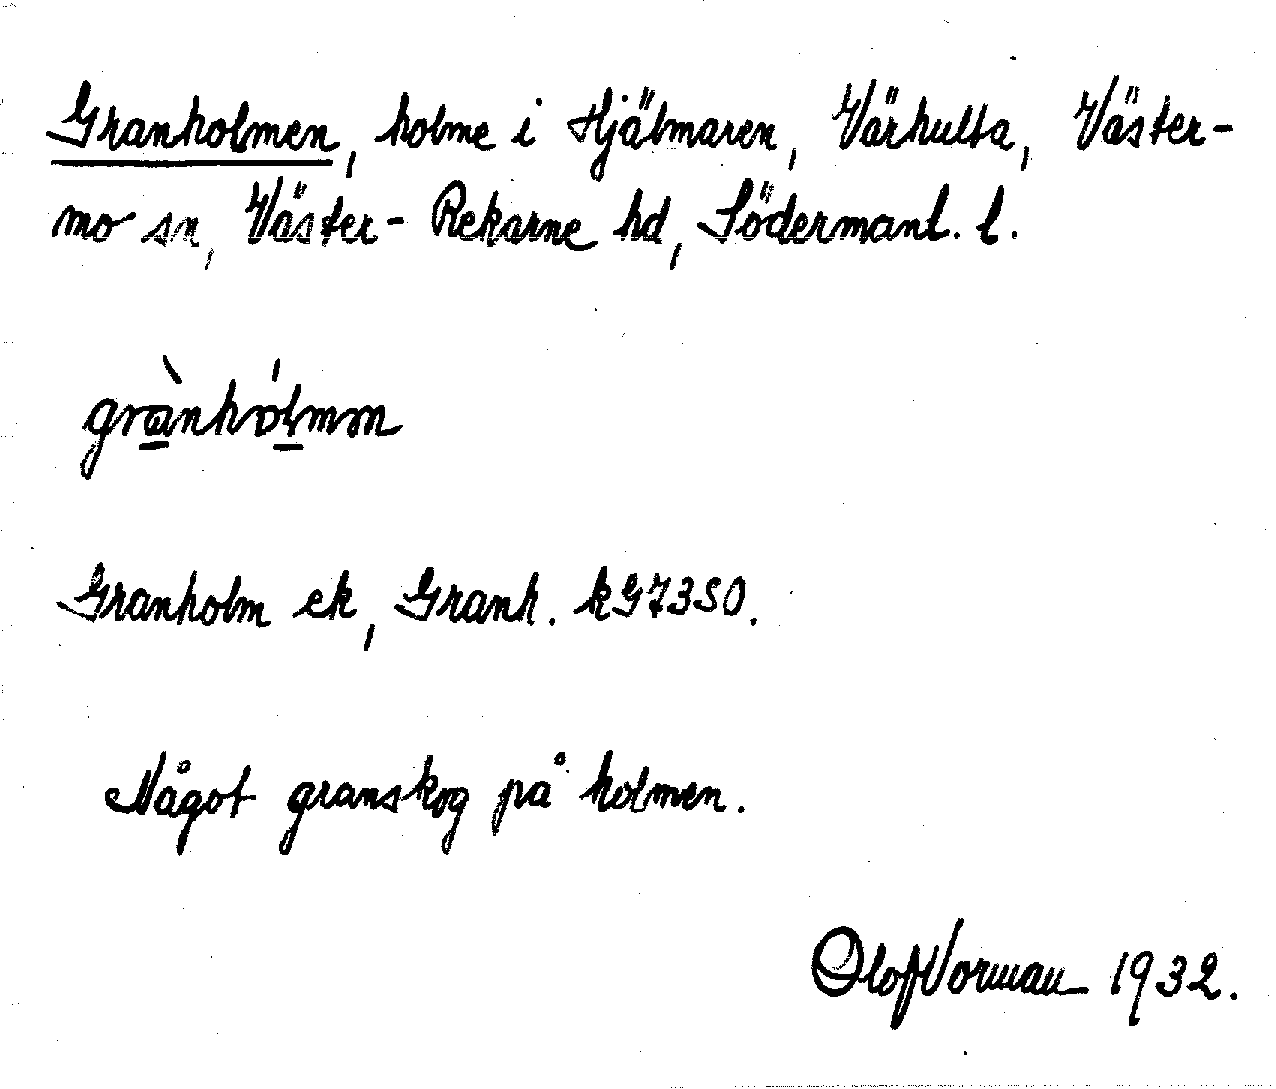 Granholmen, holme i Hjälmaren, Värhulta, Väster-
mo sn, Väster-Rekarne hd, Södermanl. l.
grànhólmm
Granholm ek, Granh. kG73SO.
Något granskog på holmen.
Olof Vorman 1932.